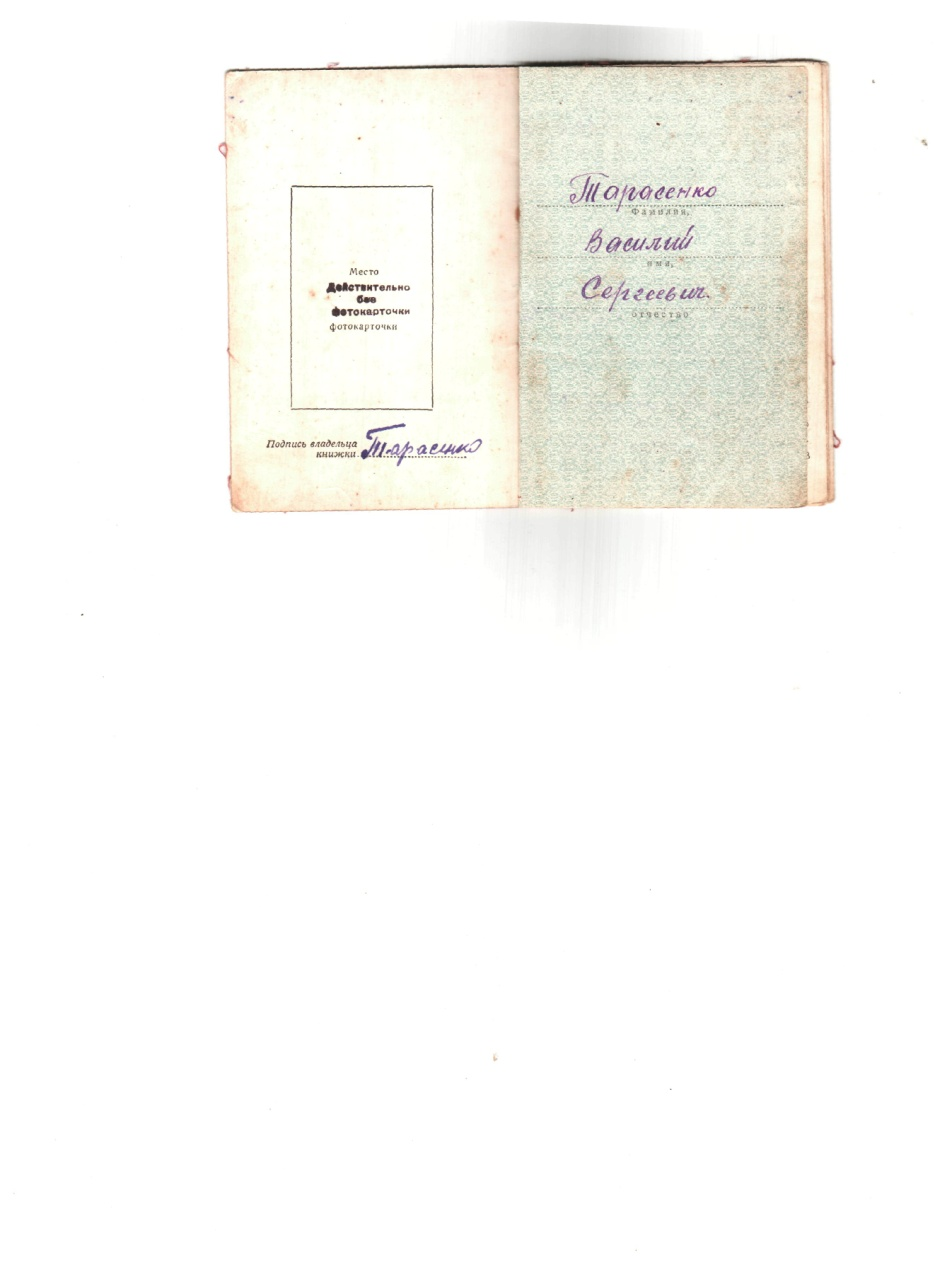 Место
Действительно
без
фотокарточки
фотокарточки
Подпись владельца
книжки
Тарасенко
Тарасенко
Фамилия,
Василий
имя,
Сергеевич.
отчество